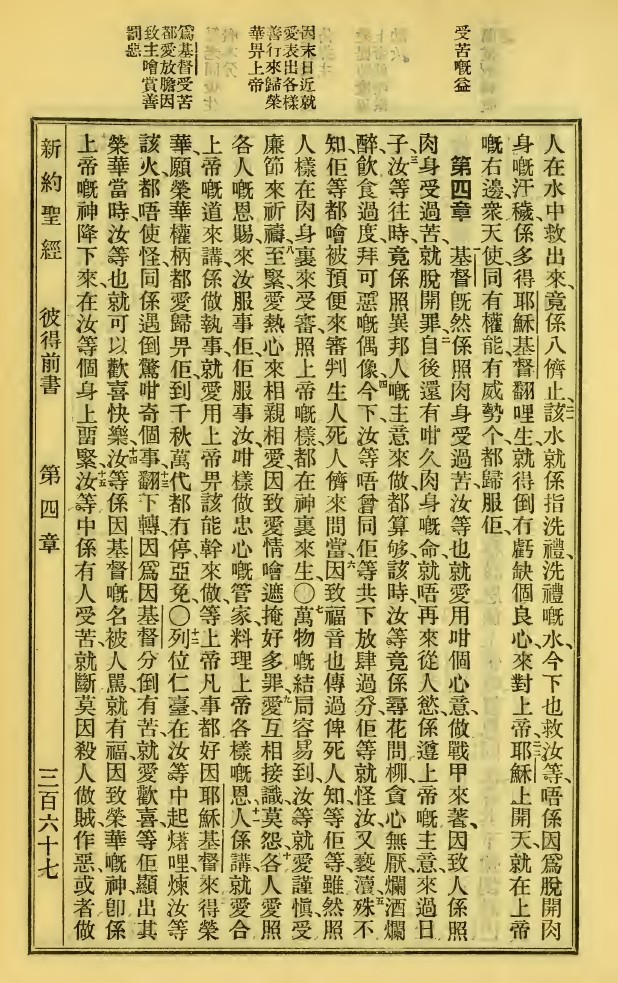 受苦嘅益
因末日近就
愛表出各樣
善行來歸榮
華畀上帝
爲基督受苦
都愛放膽因
致主噲賞善
罰惡
人在水中救出來、竟係八儕止、二一該水就係指洗禮、洗禮嘅水、今下也救汝等、唔係因爲脫開肉
身嘅汙穢、係多得耶穌基督翻哩生、就得倒冇虧缺個良心、來對上帝、二二耶穌上開天、就在上帝
嘅右邊、衆天使同有權能有威勢个都歸服佢、
第四章 基督旣然係照肉身受過苦、汝等也就愛用咁個心意、做戰甲來著、因致人係照
肉身受過苦、就脫開罪、二自後還有咁久肉身嘅命、就唔再來從人慾、係遵上帝嘅主意來過日
子、三汝等往時、竟係照異邦人嘅主意來做、都算够、該時汝等竟係尋花問柳、貪心無厭、爛酒爛
醉、飲食過度、拜可惡嘅偶像、四今下汝等唔曾同佢等共下放肆過分、佢等就怪汝、又褻瀆、五殊不
知佢等都噲被預便來審判生人死人儕來問當、六因致福音也傳過俾死人知、等佢等雖然照
人樣在肉身裏來受審、照上帝嘅樣都在神裏來生、〇七萬物嘅結局容易到、汝等就愛謹愼、受
廉節來祈禱、八至緊愛熱心來相親相愛、因致愛情噲遮掩好多罪、九愛互相接識、莫怨、十各人愛照
各人嘅恩賜、來汝服事佢、佢服事汝、咁樣做忠心嘅管家、料理上帝各樣嘅恩、十一人係講、就愛合
上帝嘅道來講、係做執事、就愛用上帝畀該能幹來做、等上帝凡事都好因耶穌基督來得榮
華、願榮華權柄都愛歸畀佢、到千秋萬代都冇停、亞孻、〇十二列位仁臺、在汝等中起㷮哩、煉汝等
該火、都唔使怪、同係遇倒驚咁奇個事、十三翻下轉、因爲因基督分倒有苦、就愛歡喜、等佢顯出其
榮華當時、汝等也就可以歡喜快樂、十四汝等係因基督嘅名被人罵、就有福、因致榮華嘅神、卽係
上帝嘅神、降下來在汝等個身上畱緊、十五汝等中係有人受苦、就斷莫因殺人做賊作惡、或者做
新約聖經 彼得前書 第四章 三百六十七